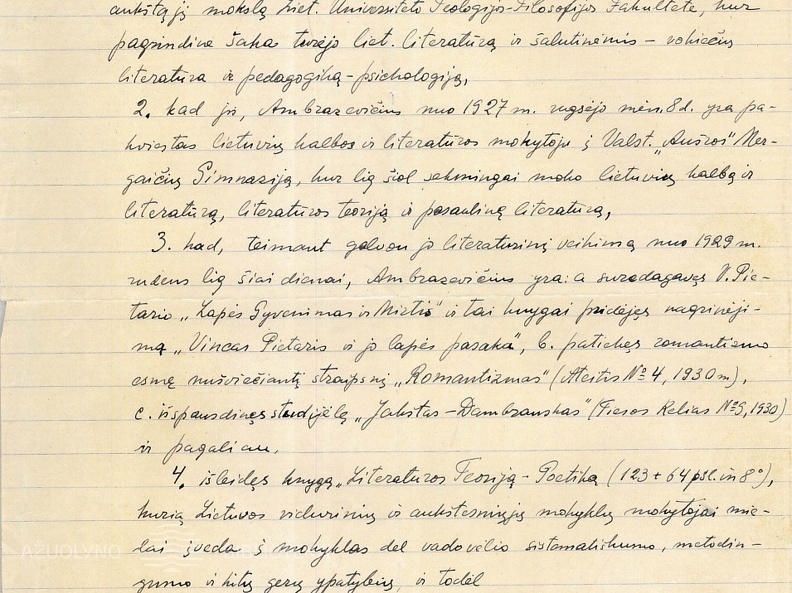 aukštąjį mokslą Liet. Universiteto Teologijos-Filosofijos Fakultete, kur
pagrindine šaka turėjo liet. literatūrą ir šalutinėmis – vokiečių
literatūra ir pedagogiką-psichologiją,
2. kad jis, Ambrazevičius nuo 1927 m. rugsėjo mėn. 8 d. yra pa-
kviestas lietuvių kalbos ir literatūros mokytoju į Valst. „Aušros" Mer-
gaičių Gimnaziją, kur lig šiol sėkmingai moko lietuvių kalbą ir
literatūrą, literatūros teoriją ir pasaulinę literatūrą,
3. kad, teimant galvon jo literatūrinį veikimą nuo 1929 m.
rudens lig šiai dienai, Ambrazevičius yra: a suredagavęs V. Pie-
tario „Lapės Gyvenimas ir Mirtis" ir tai knygai pridėjęs nagrinėji-
mą „Vincas Pietaris ir jo lapės pasaka", b. patiekęs romantizmo
esmę nušviečiantį straipsnį „Romantizmas" (Ateitis № 4, 1930 m),
c. išspausdinęs studijėlę „Jakštas-Dambrauskas" (Tiesos Kelias № 9, 1930)
ir pagaliau,
4. išleidęs knygą „Literatūros Teorija-Poetika (123 + 64 psl. in 8°),
kurią Lietuvos vidurinių ir aukštesniųjų mokyklų mokytojai mie-
lai įveda į mokyklas dėl vadovėlio sistematiškumo, metodin-
gumo ir kitų gerų ypatybių, ir todėl
AŽUOLYNO